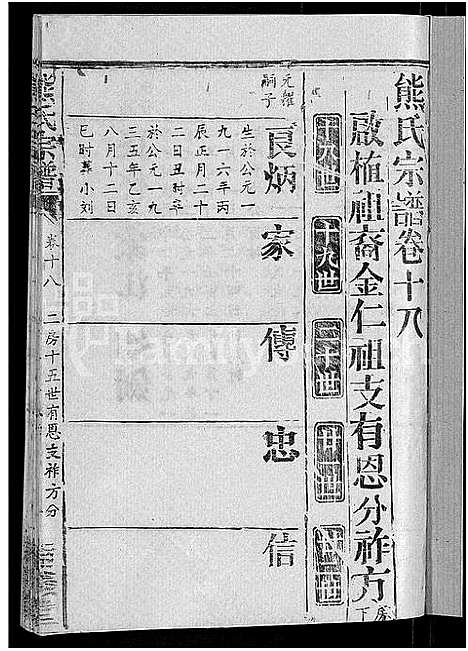 熊氏宗譜卷十八
啟植祖裔金仁祖支有恩分祚方房下
十八世
十九世
二十世
廿一世
廿二世
良炳
家
傳
忠
信
元耀
嗣子
生於公元一
九一六年丙
辰正月二十
二日丑時卒
於公元一九
三五年乙亥
八月十二日
巳時葬小刘
熊氏宗譜
卷十八
二房十五世有恩支祚方分
Family